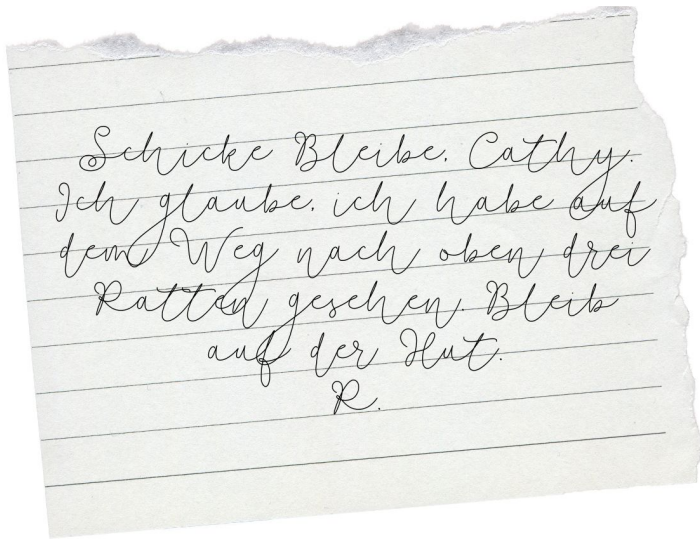 Schicke Bleibe, Cathy.
Ich glaube, ich habe auf
dem Weg nach oben drei
Ratten gesehen. Bleib
auf der Hut.
R.